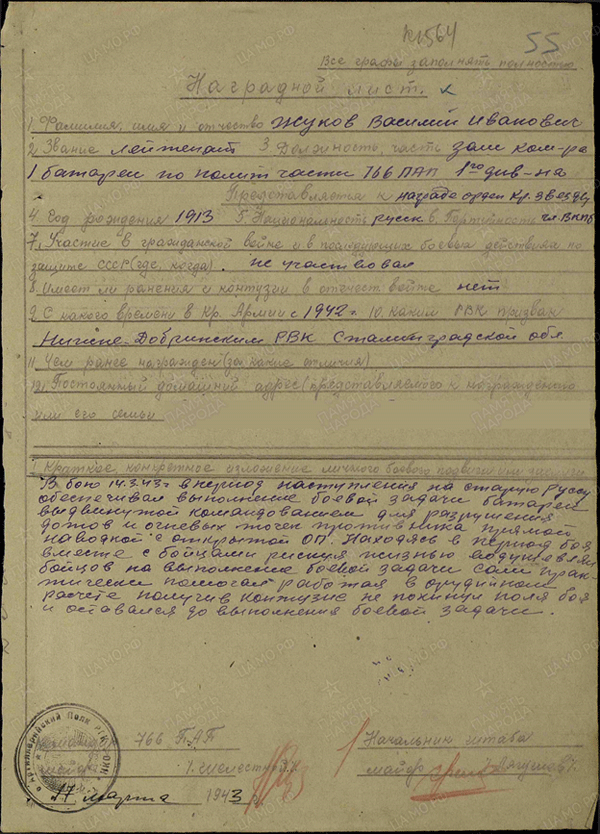 55
Все графы заполнять полностью
Наградной лист.
1 Фамилия, имя и отчество Жуков Василий Иванович
2 Звание Лейтенант 3 Должность, часть зам ком-ра
1 батареи по полит части 766 ПАП 1го див-на
Представляется к награде орден Кр. Звезды
4. Год рождения 1913 5. Национальность русск 6. Партийность чл ВКПб
7. Участие в гражданской войне и в последующих боевых действиях по
защите СССР (где, когда). не участвовал
8. Имеет ли ранения и контузии в отечеств войне нет
9. С какого времени в Кр. Армии с 1942 г 10. Каким РВК призван
Нижне-Добринским РВК Сталинградской обл
11. Чем ранее награжден (за какие отличия)
12. Постоянный домашний адрес (представляемого к награждению
или его семьи
I Краткое, конкретное изложение личного боевого подвига или заслуги
В бою 14.3.43 г в период наступления на старую Руссу
обеспечивал выполнение боевой задачи батареей
выдвинутой командованием для разрушения
дзотов и огневых точек противника прямой
наводкой с открытой ОП. Находясь в период боя
вместе с бойцами рискуя жизнью воодушевлял
бойцов на выполнение боевой задачи сам прак-
тически помогал работая в орудийном
расчете получив контузию не покинул поля боя
и оставался до выполнения боевой задачи.
766 ПАП
Начальник штаба
майор
майор
17 марта 1943 г
Артиллерийский Полк
ЦАМО.РФ
ПАМЯТЬ НАРОДА